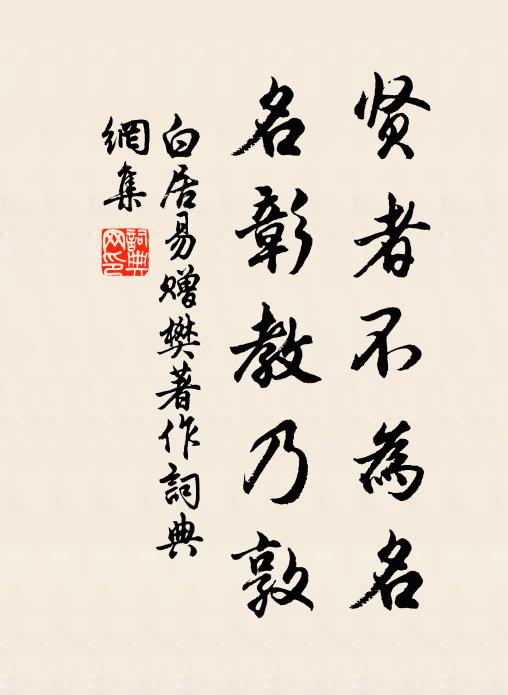 贤者不為名
名彰教乃敦
白居易赠樊著作詞典
網集
詞典
网印